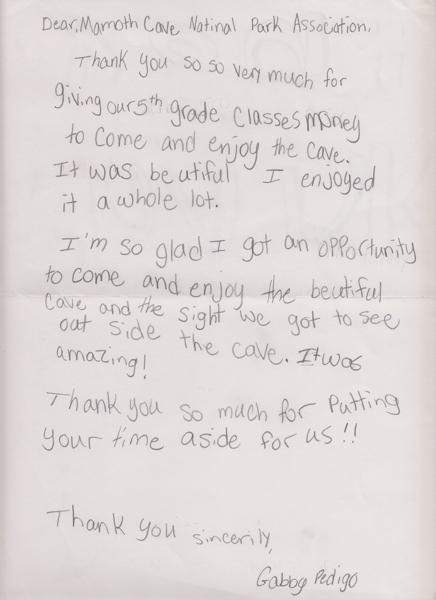 Dear, Mamoth Cave Natinal Park Association,
Thank you so so very much for
giving our 5th grade classes money
to come and enjoy the cave.
It was beutiful I enjoyed
it a whole lot.
I'm so glad I got an opportunity
to come and enjoy the beutiful
cave and the sight we got to see
out side the cave. It was
amazing!
Thank you so much for putting
your time aside for us!!
Thank you sincerily,
Gabby Pedigo